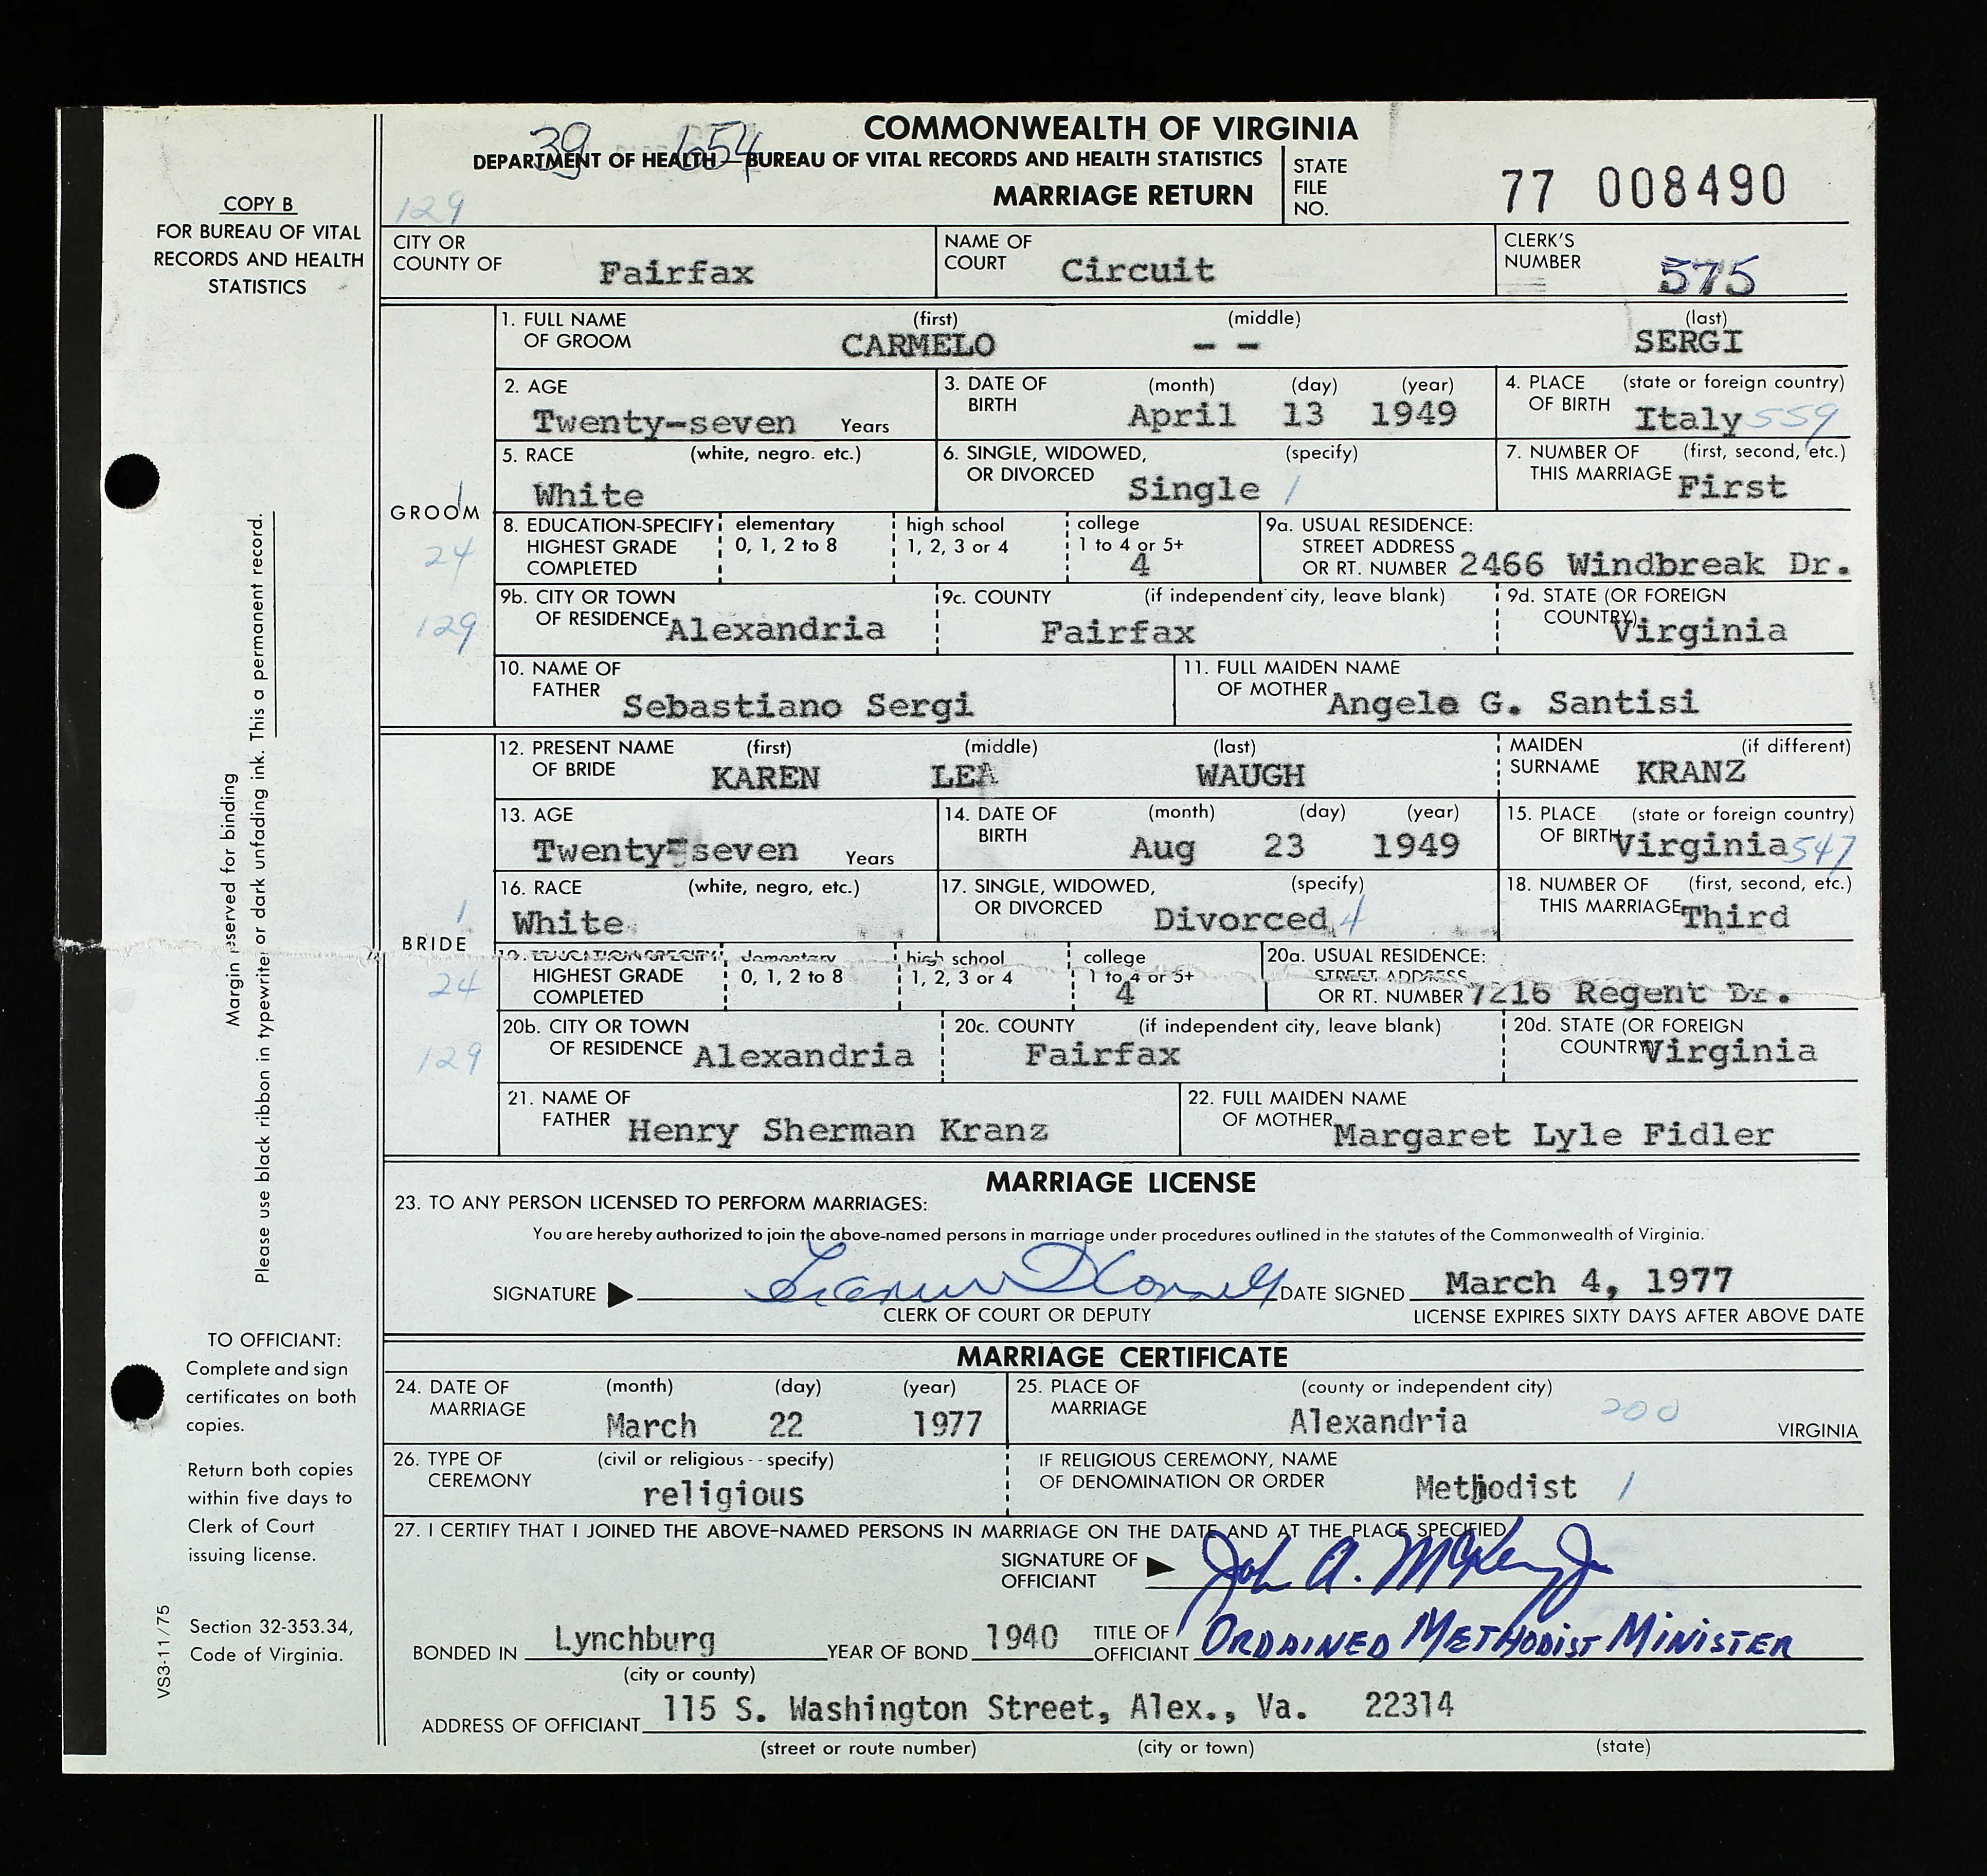 COMMONWEALTH OF VIRGINIA
39 654
DEPARTMENT OF HEALTH — BUREAU OF VITAL RECORDS AND HEALTH STATISTICS
MARRIAGE RETURN
STATE FILE NO. 77 008490
COPY B
FOR BUREAU OF VITAL
RECORDS AND HEALTH
STATISTICS
129
CITY OR COUNTY OF Fairfax
NAME OF COURT Circuit
CLERK'S NUMBER 575
GROOM
1
24
129
1. FULL NAME OF GROOM (first) (middle) (last)
CARMELO - - SERGI
2. AGE Twenty-seven Years
3. DATE OF BIRTH (month) (day) (year) April 13 1949
4. PLACE OF BIRTH (state or foreign country) Italy 559
5. RACE (white, negro. etc.) White
6. SINGLE, WIDOWED, OR DIVORCED (specify) Single 1
7. NUMBER OF THIS MARRIAGE (first, second, etc.) First
8. EDUCATION-SPECIFY HIGHEST GRADE COMPLETED
elementary 0, 1, 2 to 8
high school 1, 2, 3 or 4
college 1 to 4 or 5+ 4
9a. USUAL RESIDENCE: STREET ADDRESS OR RT. NUMBER 2466 Windbreak Dr.
9b. CITY OR TOWN OF RESIDENCE Alexandria
9c. COUNTY (if independent city, leave blank) Fairfax
9d. STATE (OR FOREIGN COUNTRY) Virginia
10. NAME OF FATHER Sebastiano Sergi
11. FULL MAIDEN NAME OF MOTHER Angela G. Santisi
BRIDE
1
24
129
12. PRESENT NAME OF BRIDE (first) (middle) (last)
KAREN LEA WAUGH
MAIDEN SURNAME (if different) KRANZ
13. AGE Twenty-seven Years
14. DATE OF BIRTH (month) (day) (year) Aug 23 1949
15. PLACE OF BIRTH (state or foreign country) Virginia 547
16. RACE (white, negro, etc.) White
17. SINGLE, WIDOWED, OR DIVORCED (specify) Divorced 4
18. NUMBER OF THIS MARRIAGE (first, second, etc.) Third
19. EDUCATION-SPECIFY HIGHEST GRADE COMPLETED
elementary 0, 1, 2 to 8
high school 1, 2, 3 or 4
college 1 to 4 or 5+ 4
20a. USUAL RESIDENCE: STREET ADDRESS OR RT. NUMBER 7216 Regent Dr.
20b. CITY OR TOWN OF RESIDENCE Alexandria
20c. COUNTY (if independent city, leave blank) Fairfax
20d. STATE (OR FOREIGN COUNTRY) Virginia
21. NAME OF FATHER Henry Sherman Kranz
22. FULL MAIDEN NAME OF MOTHER Margaret Lyle Fidler
Margin reserved for binding
Please use black ribbon in typewriter or dark unfading ink. This a permanent record.
MARRIAGE LICENSE
23. TO ANY PERSON LICENSED TO PERFORM MARRIAGES:
You are hereby authorized to join the above-named persons in marriage under procedures outlined in the statutes of the Commonwealth of Virginia.
SIGNATURE DATE SIGNED March 4, 1977
CLERK OF COURT OR DEPUTY
LICENSE EXPIRES SIXTY DAYS AFTER ABOVE DATE
MARRIAGE CERTIFICATE
24. DATE OF MARRIAGE (month) (day) (year) March 22 1977
25. PLACE OF MARRIAGE (county or independent city) Alexandria 200 VIRGINIA
26. TYPE OF CEREMONY (civil or religious -- specify) religious
IF RELIGIOUS CEREMONY, NAME OF DENOMINATION OR ORDER Methodist 1
27. I CERTIFY THAT I JOINED THE ABOVE-NAMED PERSONS IN MARRIAGE ON THE DATE AND AT THE PLACE SPECIFIED
SIGNATURE OF OFFICIANT John A. Jr
BONDED IN Lynchburg YEAR OF BOND 1940 TITLE OF OFFICIANT ORDAINED METHODIST MINISTER
(city or county)
ADDRESS OF OFFICIANT 115 S. Washington Street, Alex., Va. 22314
(street or route number) (city or town) (state)
TO OFFICIANT:
Complete and sign
certificates on both
copies.
Return both copies
within five days to
Clerk of Court
issuing license.
Section 32-353.34,
Code of Virginia.
VS3-11/75